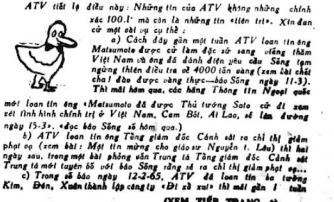 ATV tiết lộ điều này: Những tin của ATV không những chính
xác 100.1' mà còn là những tin «tiên tri». Xin đan
cử một vài vụ cụ thể:
a) Cách đây gần một tuần ATV loan tin ông
Matsumoto được cử làm đặc sứ sang viếng thăm
Việt Nam và ông đã đánh điện yêu cầu Sống tạm
ngừng thiên điều tra về 4000 tấn vàng (xem bài chết
cha! đào được vàng thực—báo Sống ngày 11-3).
Thì mãi hôm qua, các hãng Thông tin Ngoại quốc
mới loan tin ông «Matsumoto đã được Thủ tướng Sato cử đi xem
xét tình hình chính trị ở Việt Nam, Cam Bốt, Ai Lao, sẽ lên đường
ngày 15-3». (đọc báo Sống số hôm qua.)
b) ATV loan tin ông Tổng giám đốc Cảnh sát ra chỉ thị giảm
phạt ọp (xem bài: Một tin mừng cho giáo sư Nguyễn t. Lâu) thì hai
ngày sau, trong một bài phỏng vấn Trung tá Tổng giám đốc Cảnh sát
Trung tá mới tuyên bố với báo Sống rằng sẽ ra chỉ thị giảm phạt ọp...
c) Trong số báo ngày 12-3-65, ATV đã loan tin ba tướng
Kim, Đôn, Xuân thành lập công ty «Đi xề xui» thì mãi gần 1 tuần
(XEM TIẾP TRANG